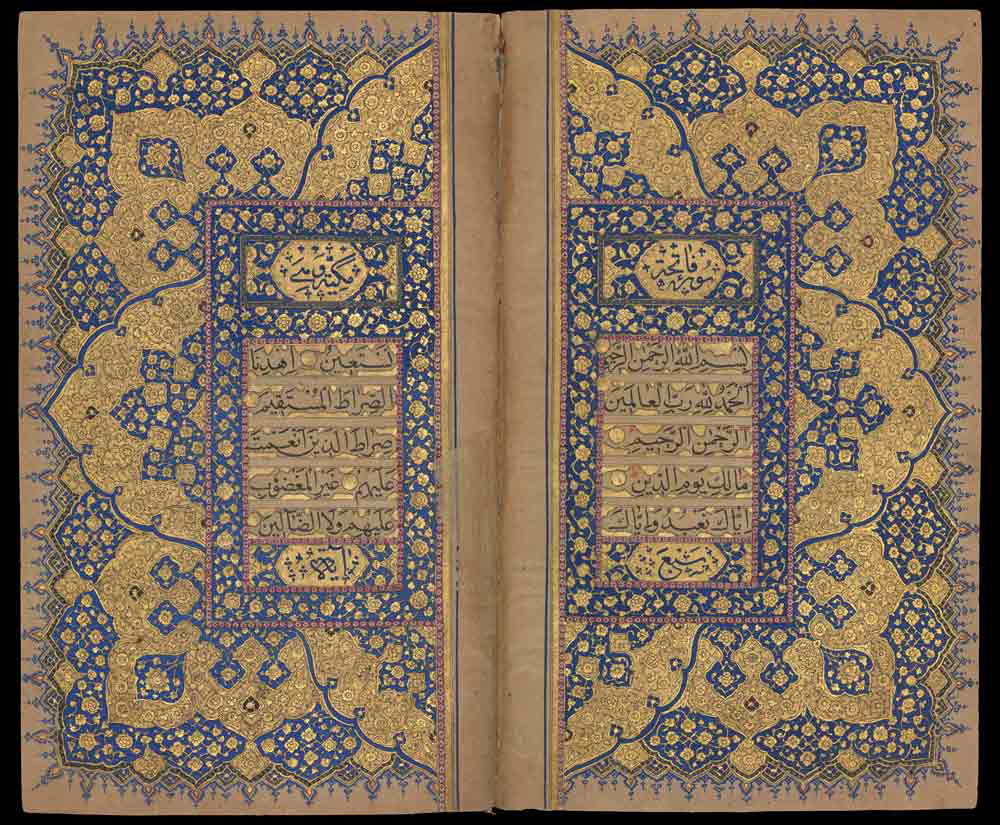 سورة فاتحة
بسم الله الرحمن الرحيم
الحمد لله رب العالمين
الرحمن الرحيم
مالك يوم الدين
اياك نعبد واياك
سبع
مكية وهي
نستعين اهدنا
الصراط المستقيم
صراط الذين انعمت
عليهم غير المغضوب
عليهم ولا الضالين
آيات